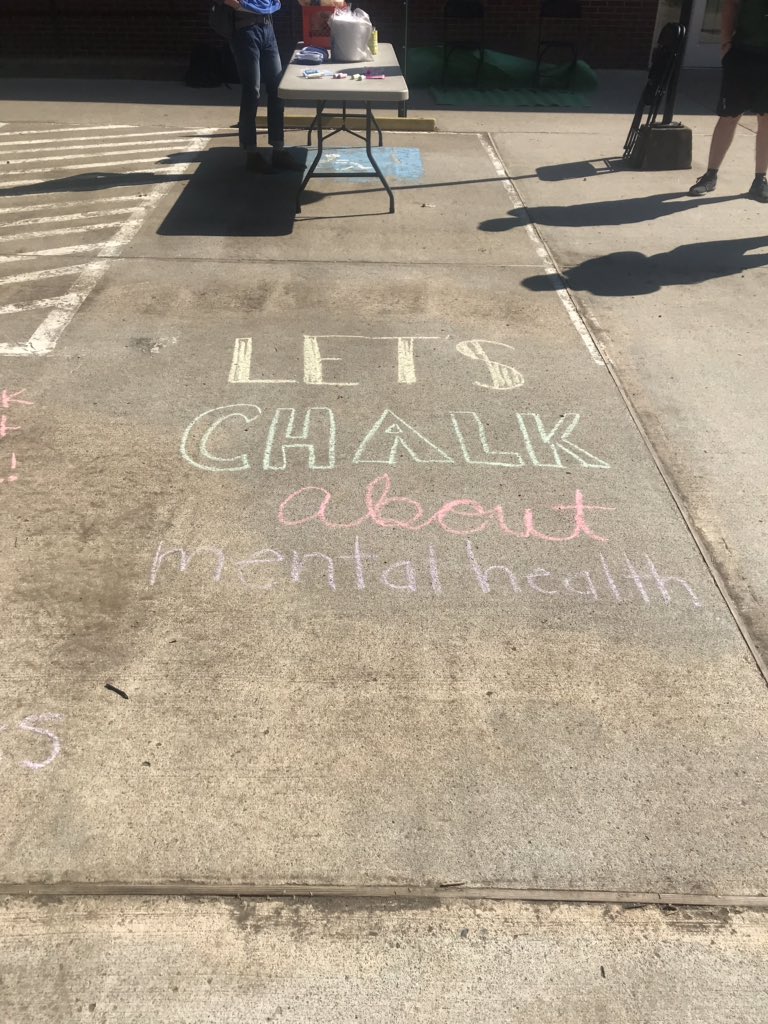 LET'S
CHALK
about
mental health